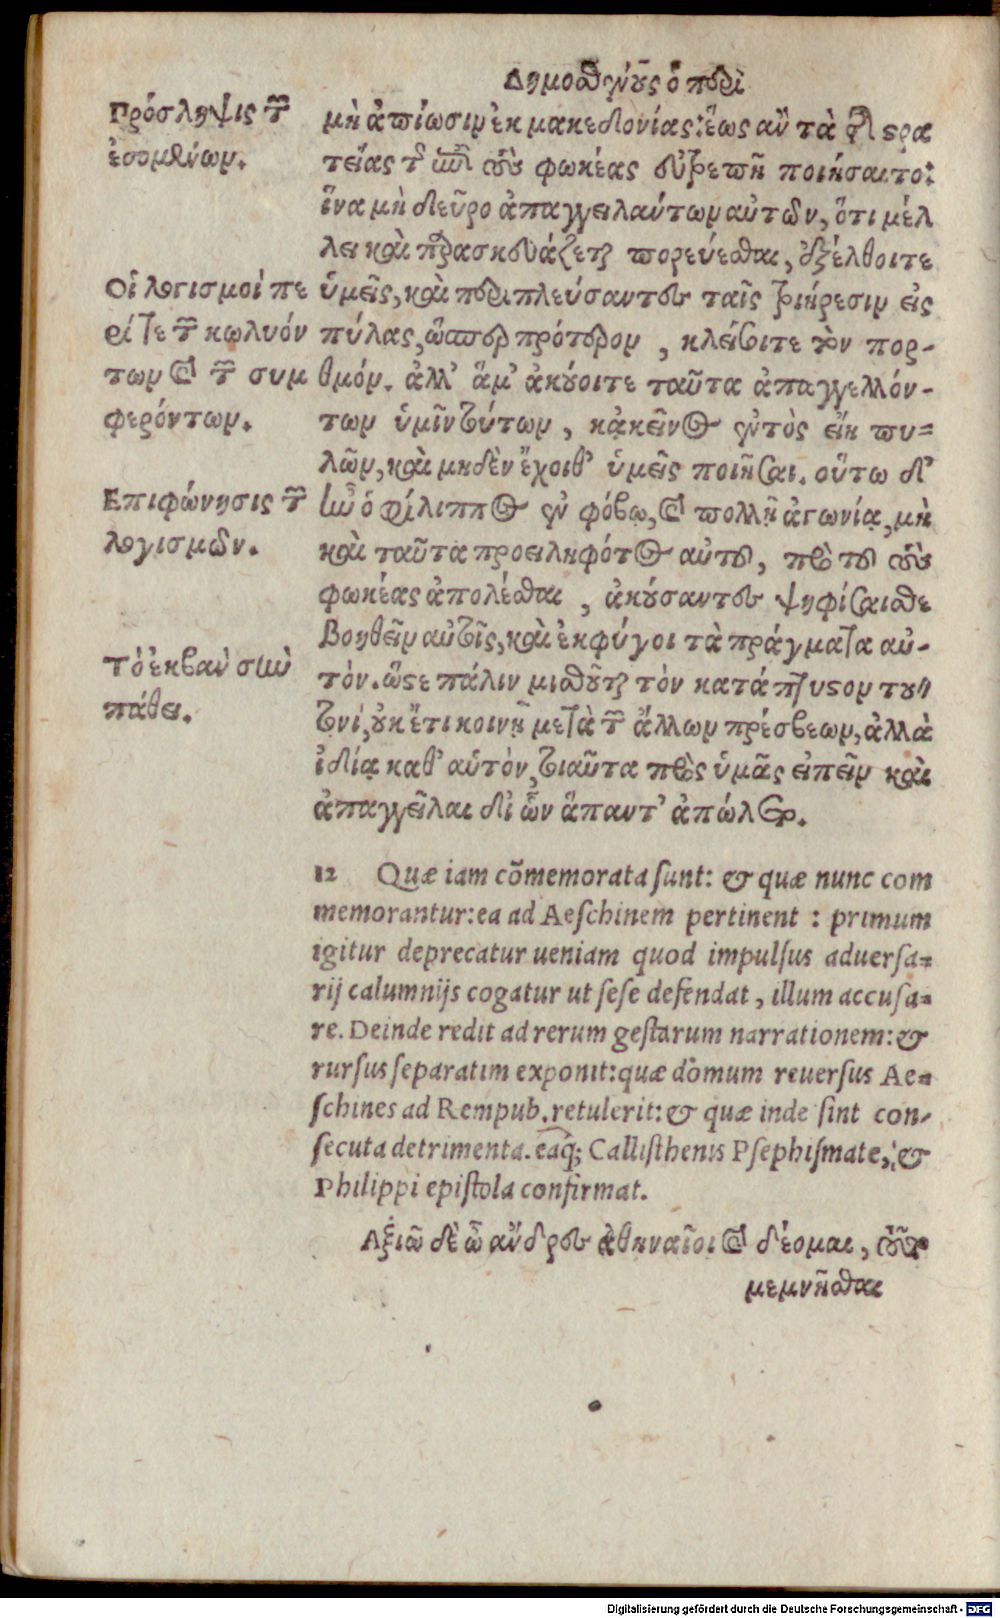 Δημοσθένους ὁ περὶ
Πρόσληψις τῶν
ἐσομένων.
μὴ ἀπίωσιν ἐκ μακεδονίας: ἕως ἂν τὰ τῆς στρα
τείας τῆς ἐπὶ τοὺς φωκέας εὐτρεπῆ ποιήσαιτο:
ἵνα μὴ δεῦρο ἀπαγγειλάντων αὐτῶν, ὅτι μέλ
λει καὶ παρασκευάζεται πορεύεσθαι, ἐξέλθοιτε
Οἱ λογισμοὶ πε
ρί τε τῶν κωλυόν
των καὶ τῶν συμ
φερόντων.
ὑμεῖς, καὶ περιπλεύσαντες ταῖς τριήρεσιν εἰς
πύλας, ὥσπερ πρότερον, κλείσοιτε τὸν πορ-
θμόν. ἀλλ' ἅμ' ἀκούοιτε ταῦτα ἀπαγγελλόν-
των ὑμῖν τούτων, κἀκεῖνος ἐντὸς εἴη πυ=
λῶν, καὶ μηδὲν ἔχοιθ' ὑμεῖς ποιῆσαι. οὕτω δ'
Επιφώνησις τῶν
λογισμῶν.
ἦν ὁ φίλιππος ἐν φόβῳ, καὶ πολλῇ ἀγωνίᾳ, μὴ
καὶ ταῦτα προειληφότος αὐτοῦ, πρὸ τοῦ τοὺς
φωκέας ἀπολέσθαι, ἀκούσαντες ψηφίσαισθε
βοηθεῖν αὐτοῖς, καὶ ἐκφύγοι τὰ πράγματα αὐ-
Τὸ ἐκβὰν σὺν
πάθει.
τόν. ὥστε πάλιν μισθοῦται τὸν κατάπτυστον του
τονί, οὐκέτι κοινῇ μετὰ τῶν ἄλλων πρέσβεων, ἀλλὰ
ἰδίᾳ καθ' αὑτὸν, τοιαῦτα πρὸς ὑμᾶς εἰπεῖν καὶ
ἀπαγγεῖλαι δι' ὧν ἅπαντ' ἀπώλετο.
12 Quæ iam cōmemorata sunt: & quæ nunc com
memorantur: ea ad Aeschinem pertinent: primum
igitur deprecatur ueniam quod impulsus aduersa=
rij calumnijs cogatur ut sese defendat, illum accusa=
re. Deinde redit ad rerum gestarum narrationem: &
rursus separatim exponit: quæ domum reuersus Ae=
schines ad Rempub. retulerit: & quæ inde sint con-
secuta detrimenta. eaq; Callisthenis Psephismate, &
Philippi epistola confirmat.
Αξιῶ δὲ ὦ ἄνδρες ἀθηναῖοι καὶ δέομαι, τοῦτο
μεμνῆσθαι
Digitalisierung gefördert durch die Deutsche Forschungsgemeinschaft - DFG